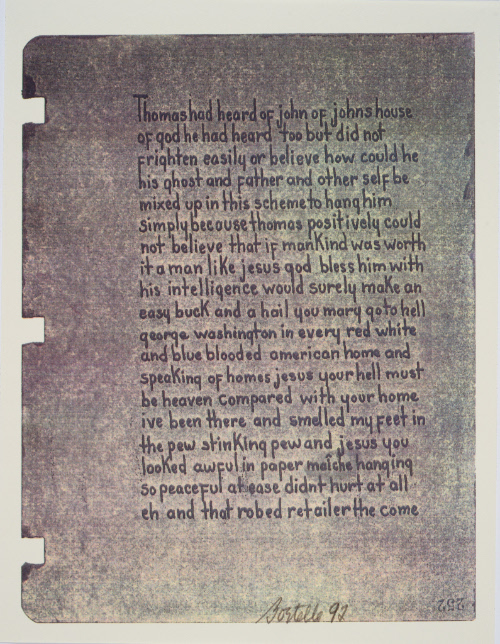 Thomas had heard of john of johns house
of god he had heard too but did not
frighten easily or believe how could he
his ghost and father and other self be
mixed up in this scheme to hang him
simply because thomas positively could
not believe that if mankind was worth
it a man like jesus god bless him with
his intelligence would surely make an
easy buck and a hail you mary go to hell
george washington in every red white
and blue blooded american home and
speaking of homes jesus your hell must
be heaven compared with your home
ive been there and smelled my feet in
the pew stinking pew and jesus you
looked awful in paper maîche hanging
so peaceful at ease didnt hurt at all
eh and that robed retailer the come
Bortello 92
252